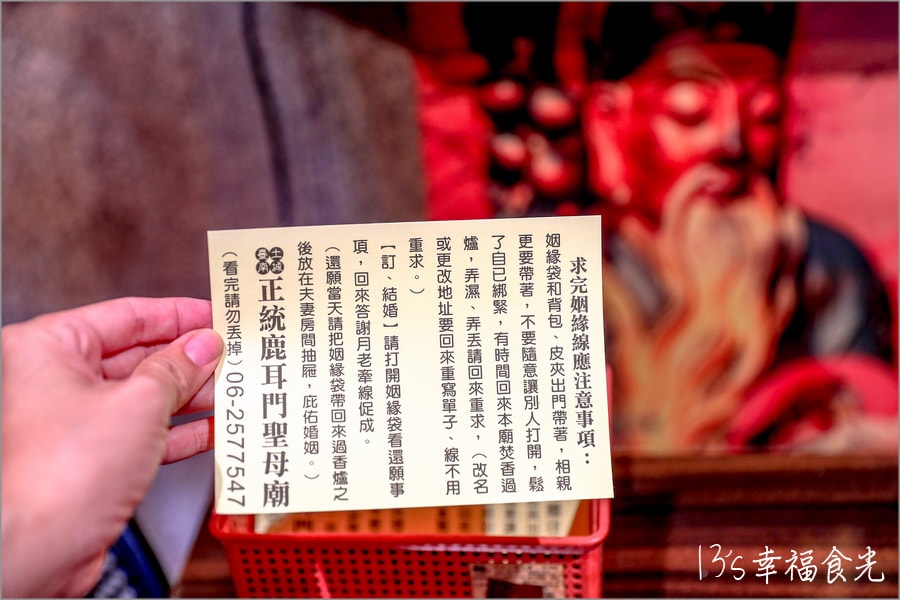 求完姻緣線應注意事項：
姻緣袋和背包、皮夾出門帶著，相親
更要帶著，不要隨意讓別人打開，鬆
了自已綁緊，有時間回來本廟焚香過
爐，弄濕、弄丟請回來重求，（改名
或更改地址要回來重寫單子、線不用
重求。）
【訂、結婚】請打開姻緣袋看還願事
項，回來答謝月老牽線促成。
（還願當天請把姻緣袋帶回來過香爐之
後放在夫妻房間抽屜，庇佑婚姻。）
臺南土城正統鹿耳門聖母廟
（看完請勿丟掉）06-2577547
13's幸福食光